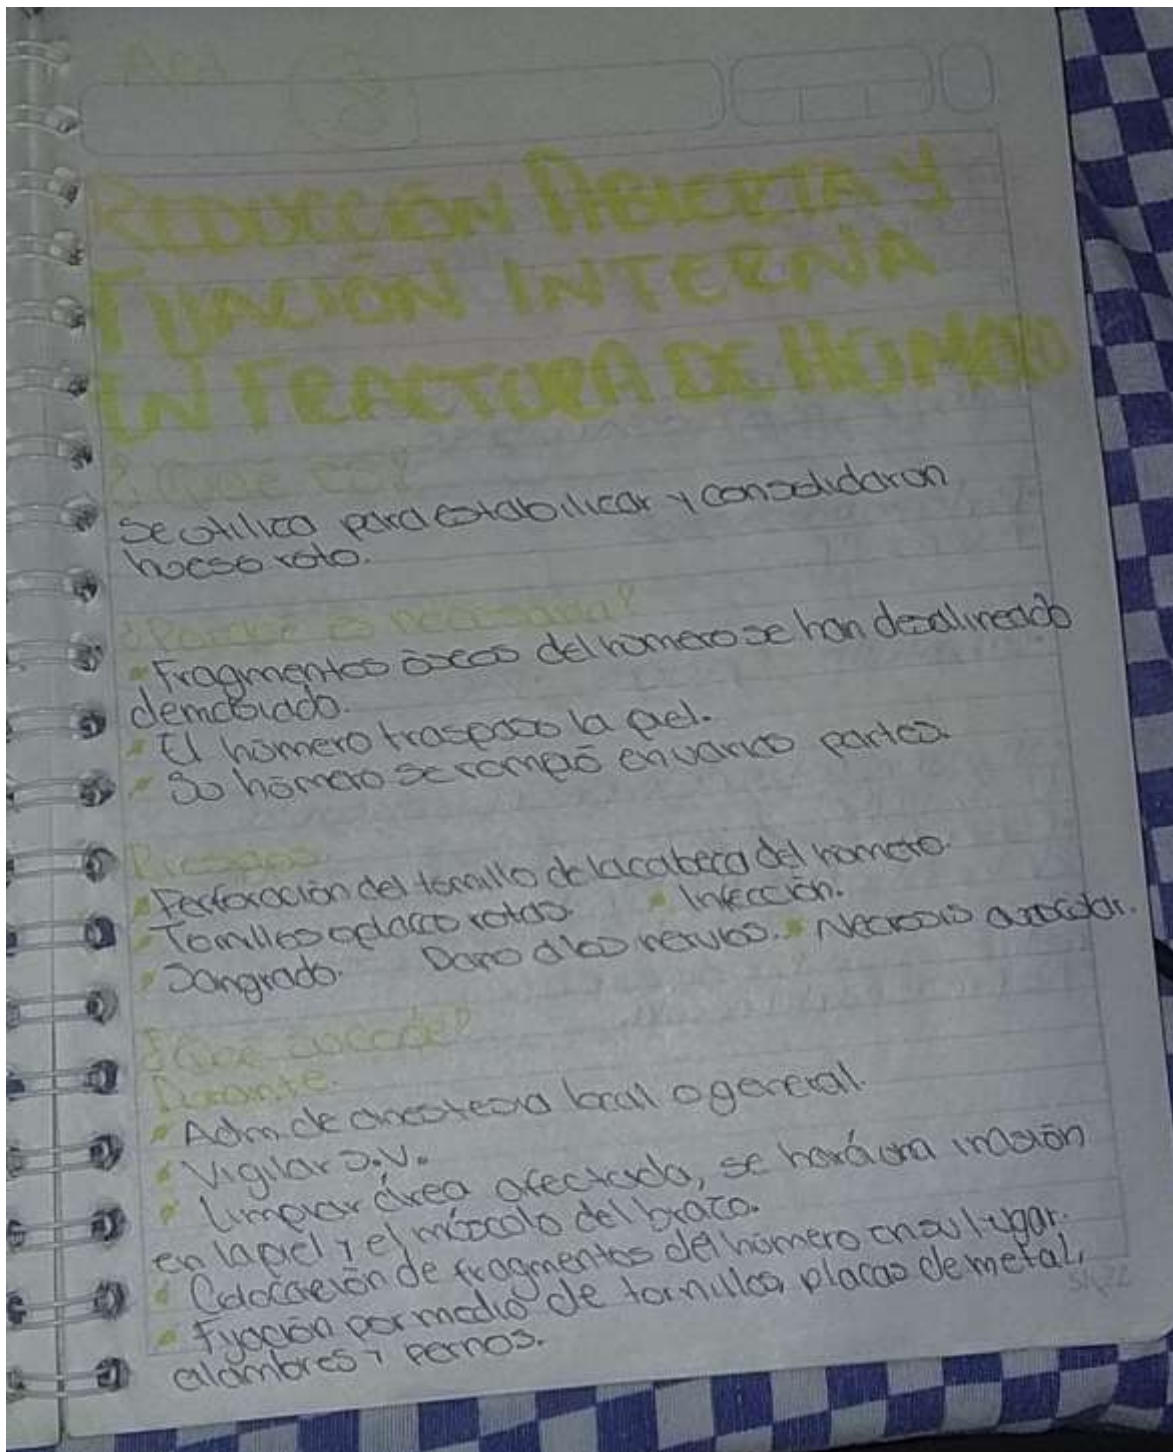 Act 8
REDUCCIÓN ABIERTA Y
FIJACIÓN INTERNA
EN FRACTURA DE HÚMERO
¿Qué es?
Se utilica para estabilicar y consolidar un
hueso roto.
¿Porque es necesaria?
Fragmentos óseos del húmero se han desalineado
demasiado.
El húmero traspaso la piel.
Su húmero se rompió en varias partes.
Riesgos
Perforación del tornillo de la cabeca del húmero.
Tornillos o placas rotas. Infección.
Sangrado. Daño a los nervios. Necrosis avascular.
¿Qué sucede?
Durante.
Adm. de anestesia local o general.
Vigilar S.V.
Limpiar área afectada, se hará una incisión
en la piel y el músculo del brazo.
Colocación de fragmentos del húmero en su lugar.
Fijación por medio de tornillos, placas de metal,
alambres y pernos.